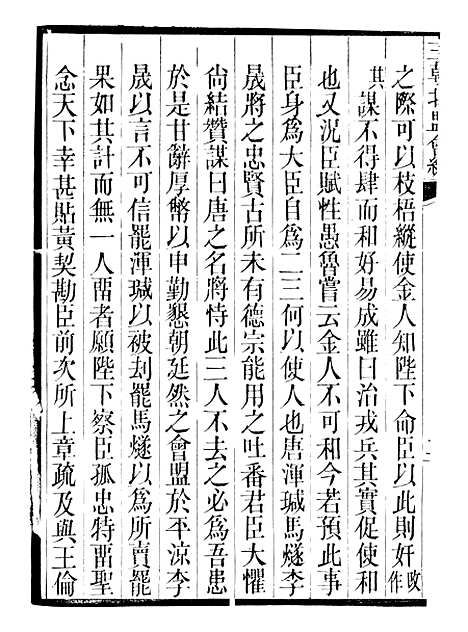 三朝北盟會編
之際可以枝梧縱使金人知陛下命臣以此則奸改作
其謀不得肆而和好易成雖曰治戎兵其實促使和
也又況臣賦性愚魯嘗云金人不可和今若預此事
臣身為大臣自為二三何以使人也唐渾瑊馬燧李
晟將之忠賢古所未有德宗能用之吐番君臣大懼
尙結贊謀曰唐之名將恃此三人不去之必為吾患
於是甘辭厚幣以申勤懇朝廷然之會盟於平涼李
晟以言不可信罷渾瑊以被刦罷馬燧以為所賣罷
果如其計而無一人畱者願陛下察臣孤忠特畱聖
念天下幸甚貼黃契勘臣前次所上章疏及與王倫